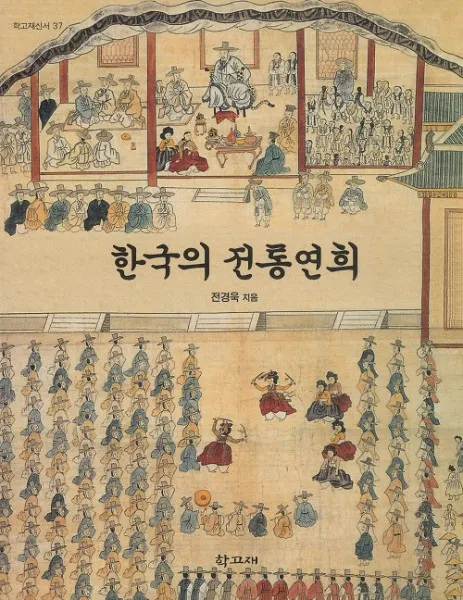 학고재신서 37
한국의 전통연희
전경욱 지음
학고재